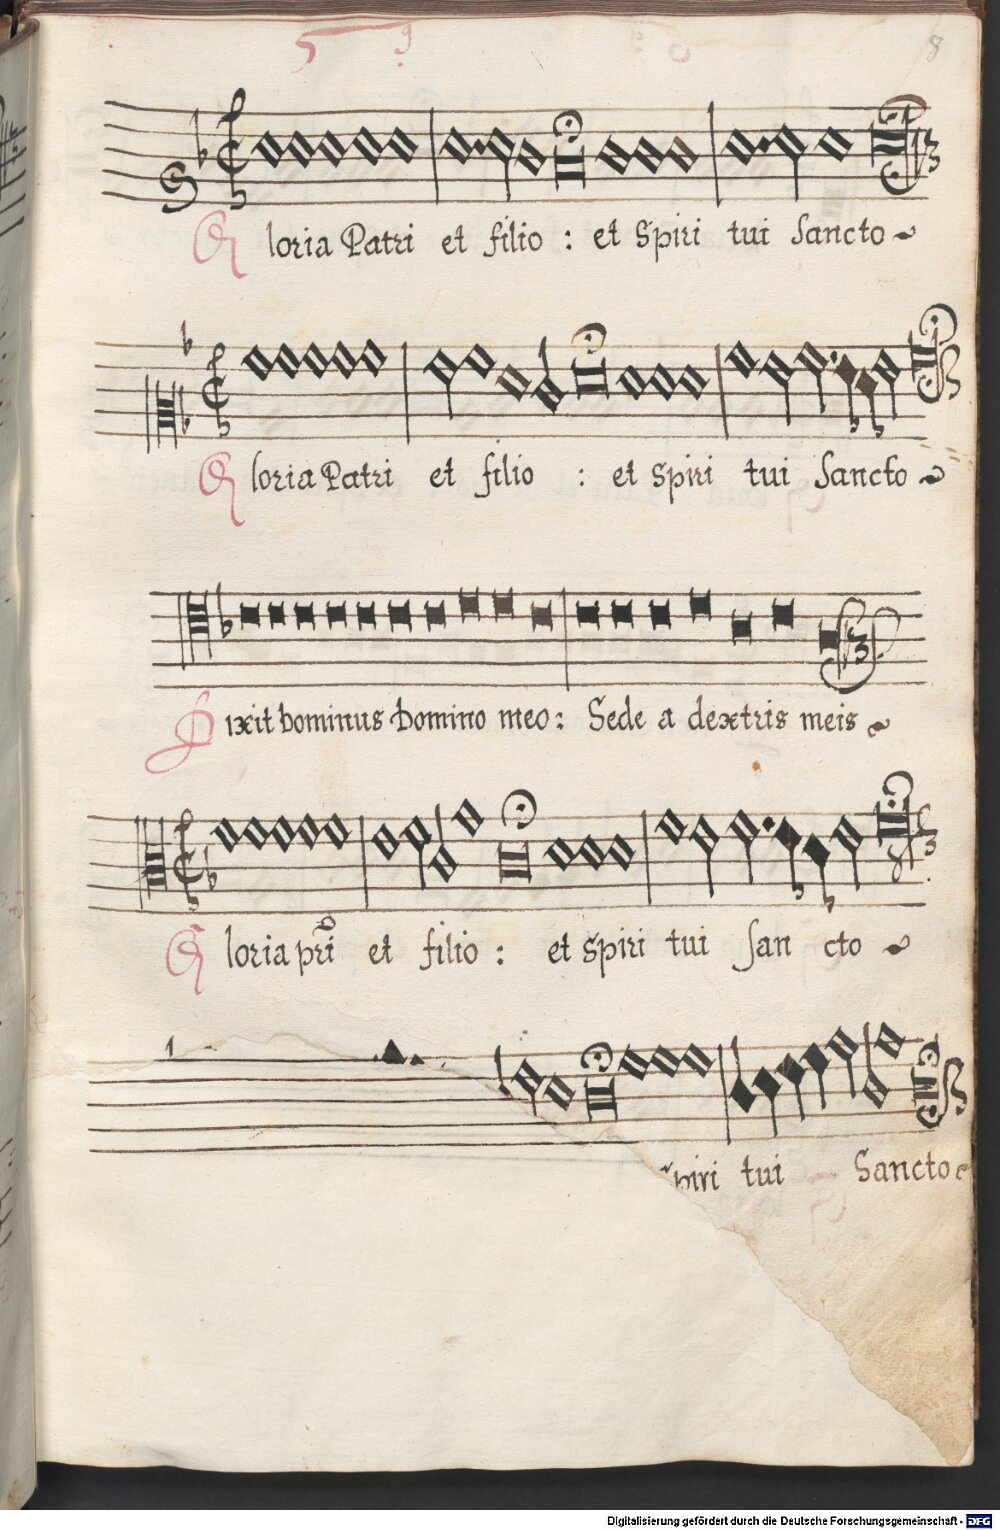 8
Gloria Patri et filio : et Spiri tui Sancto
Gloria Patri et filio : et Spiri tui Sancto
Dixit Dominus Domino meo : Sede a dextris meis
Gloria pri et filio : et Spiri tui San cto
Spiri tui Sancto
Digitalisierung gefördert durch die Deutsche Forschungsgemeinschaft - DFG